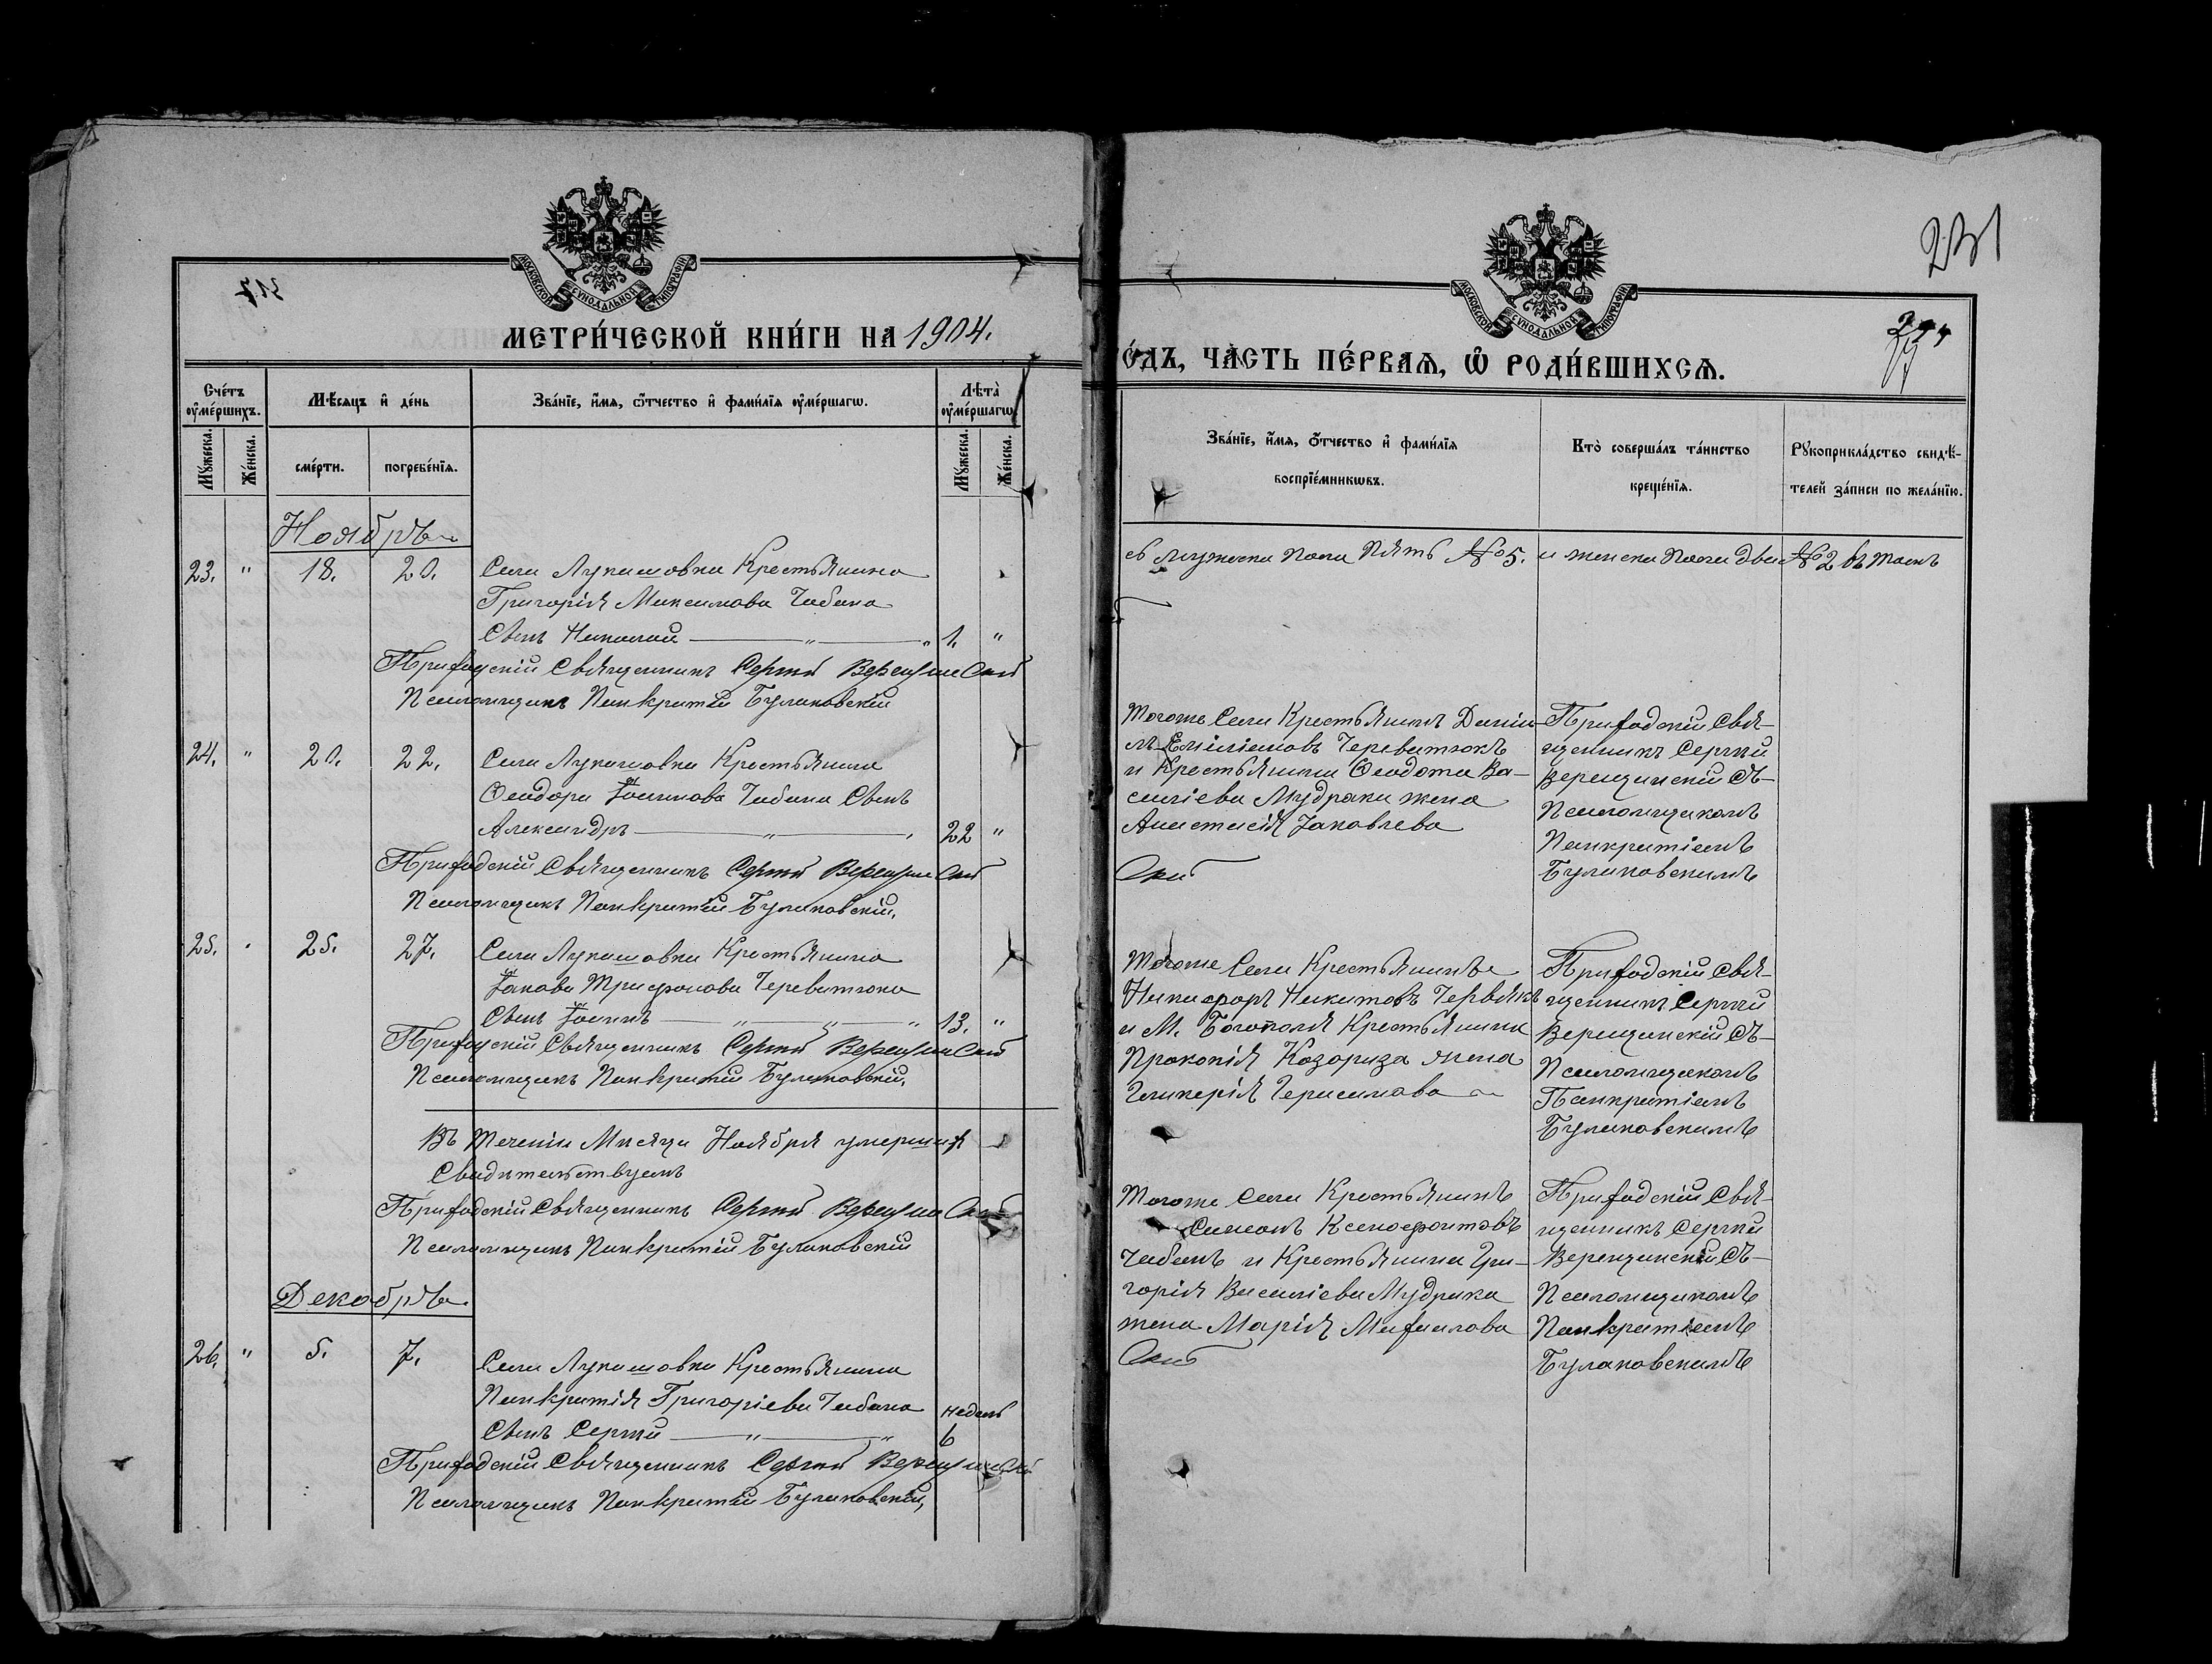 МОСКОВСКОЙ СѴНОДАЛЬНОЙ ТИПОГРАФІИ
317
МЕТРИ́ЧЕСКОЙ КНИ́ГИ НА 1904.
Сче́тъ ᲂу҆ме́ршихъ.
Мѣ́сяцъ и҆ де́нь
Зва́нїе, и҆́мѧ, ѻ҆́тчество и҆ фами́лїѧ ᲂу҆ме́ршагѡ.
Лѣта̀ ᲂу҆ме́ршагѡ.
Мꙋ́жеска.
Же́нска.
сме́рти.
погребе́нїѧ.
Мꙋ́жеска.
Же́нска.
Ноябрь
23. " 18. 20. Села Лукашовки Крестьянина
Григорія Максимова Чабана
Сынъ Николай — " — " 1. "
Приходскій Священникъ Сергій Верещинскій
Псаломщикъ Панкратій Булаковскій
24. " 20. 22. Села Лукашовки Крестьянина
Ѳеодора Іоаннова Чабана Сынъ
Александръ — " — 22 "
Приходскій Священникъ Сергій Верещинскій
Псаломщикъ Панкратій Булаковскій.
25. " 25. 27. Села Лукашовки Крестьянина
Іакова Трифонова Череватюка
Сынъ Іоаннъ — " — " — " 13. "
Приходскій Священникъ Сергій Верещинскій
Псаломщикъ Панкратій Булаковскій.
Въ теченіи Мѣсяца Ноября умершихъ
Свидѣтельствуемъ
Приходскій Священникъ Сергій Верещинскій
Псаломщикъ Панкратій Булаковскій
Декабрь
26. " 5. 7. Села Лукашовки Крестьянина
Панкратія Григоріева Чабана недель
Сынъ Сергій — " — " 6
Приходскій Священникъ Сергій Верещинскій
Псаломщикъ Панкратій Булаковскій,
231
МОСКОВСКОЙ СѴНОДАЛЬНОЙ ТИПОГРАФІИ
О́ДЪ, ЧА́СТЬ ПЕ́РВАѦ, Ѡ҆ РОДИ́ВШИХСѦ.
Зва́нїе, и҆́мѧ, ѻ҆́тчество и҆ фами́лїѧ
воспрїе́мникѡвъ.
Кто̀ соверша́лъ та́инство
креще́нїѧ.
Рꙋкоприкла́дство свидѣ́-
телей за́писи по жела́нїю.
съ мужеска пола пять № 5. и женска пола два № 2 въ томъ
Тогоже Села Крестьянинъ Даніи-
лъ Емиліановъ Череватюкъ
и Крестьянина Ѳеодота Ва-
силіева Мудрака жена
Анастасія Іаковлева
Скій
Приходскій Свя-
щенникъ Сергій
Верещинскій съ
Псаломщикомъ
Панкратіемъ
Булаковскимъ
Тогоже Села Крестьянинъ
Никифоръ Никитовъ Червякъ
и М. Богополя Крестьянина
Прокопія Козориза жена
Гликерія Герасимова
Приходскій Свя-
щенникъ Сергій
Верещинскій съ
Псаломщикомъ
Панкратіемъ
Булаковскимъ
Тогоже Села Крестьянинъ
Симеонъ Ксенофонтовъ
Чабанъ и Крестьянина Гри-
горія Василіева Мудрака
жена Марія Михаилова
Скій
Приходскій Свя-
щенникъ Сергій
Верещинскій съ
Псаломщикомъ
Панкратіемъ
Булаковскимъ